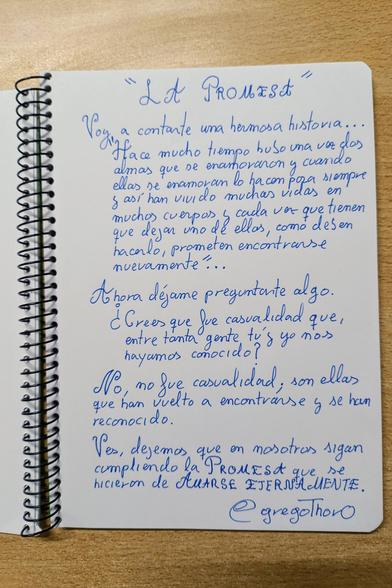 "LA PROMESA"
Voy a contarte una hermosa historia...
"Hace mucho tiempo hubo una vez dos
almas que se enamoraron y cuando
ellas se enamoran lo hacen para siempre
y así han vivido muchas vidas en
muchos cuerpos y cada vez que tienen
que dejar uno de ellos, como deben
hacerlo, prometen encontrarse
nuevamente"...
Ahora déjame preguntarte algo.
¿Crees que fue casualidad que,
entre tanta gente tú y yo nos
hayamos conocido?
No, no fue casualidad, son ellas
que han vuelto a encontrarse y se han
reconocido.
Ves, dejemos que en nosotros sigan
cumpliendo la PROMESA que se
hicieron de AMARSE ETERNAMENTE.
@gregoThorO